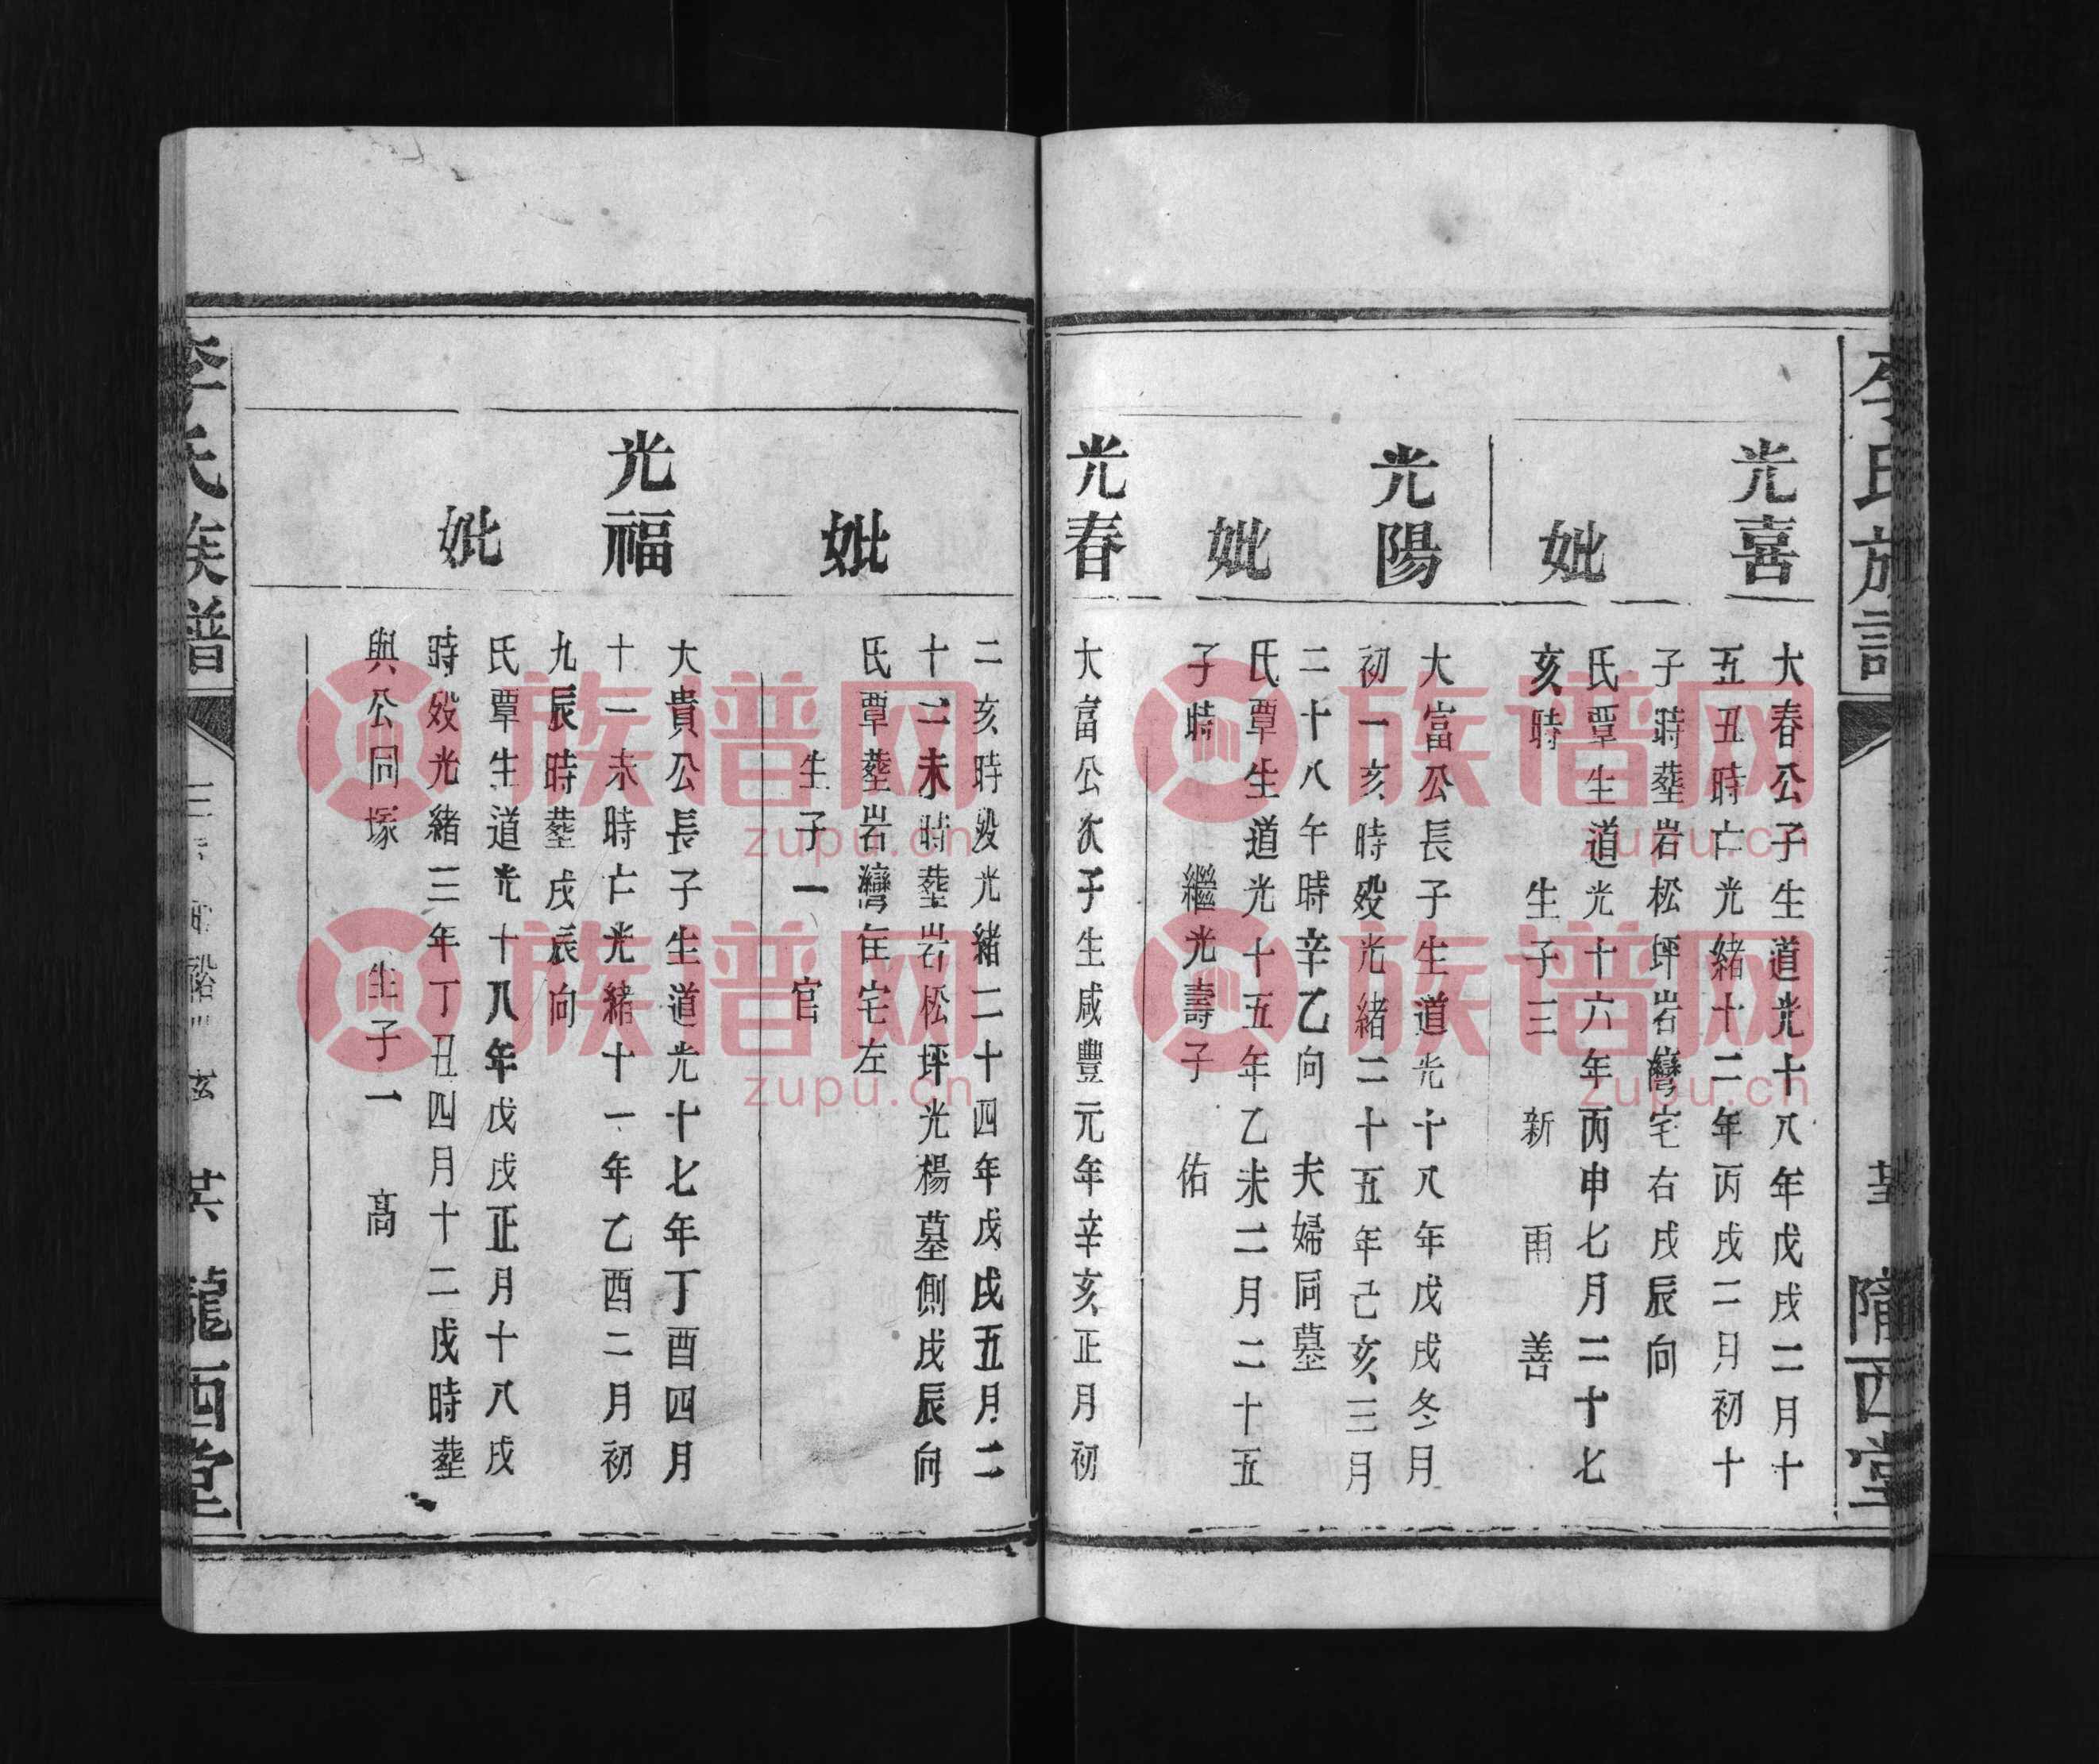 李氏族譜
隴西堂
光喜
大春公子生道光十八年戊戌二月十
五丑時亡光緒十二年丙戌二月初十
子時塟岩松坪岩灣宅右戌辰向
妣
氏覃生道光十六年丙申七月二十七
亥時 生子三 新 雨 善
光陽
大富公長子生道光十八年戊戌冬月
初一亥時殁光緒二十五年己亥三月
二十八午時辛乙向 夫婦同墓
妣
氏覃生道光十五年乙未二月二十五
子時 繼光壽子 佑
光春
大富公次子生咸豐元年辛亥正月初
二亥時殁光緒二十四年戊戌五月二
十二未時塟岩松坪光楊墓側戌辰向
妣
氏覃塟岩灣住宅左
生子一 官
光福
大貴公長子生道光十七年丁酉四月
十一未時亡光緒十一年乙酉二月初
九辰時塟戌辰向
妣
氏覃生道光十八年戊戌正月十八戌
時殁光緒三年丁丑四月十二戌時塟
與公同塚 生子一 高
李氏族譜
隴西堂
族谱网
zupu.cn
族谱网
zupu.cn
族谱网
zupu.cn
族谱网
zupu.cn